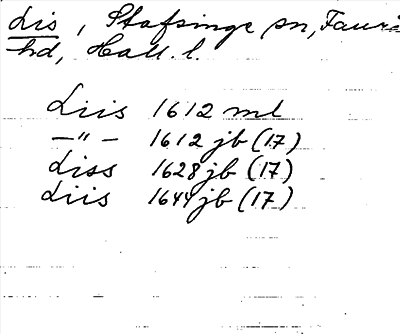 Lis, Stafsinge sn, Faurås
hd, Hall. l.
Liis 1612 ml
—"— 1612 jb (17)
Liss 1628 jb (17)
Liis 1644 jb (17)